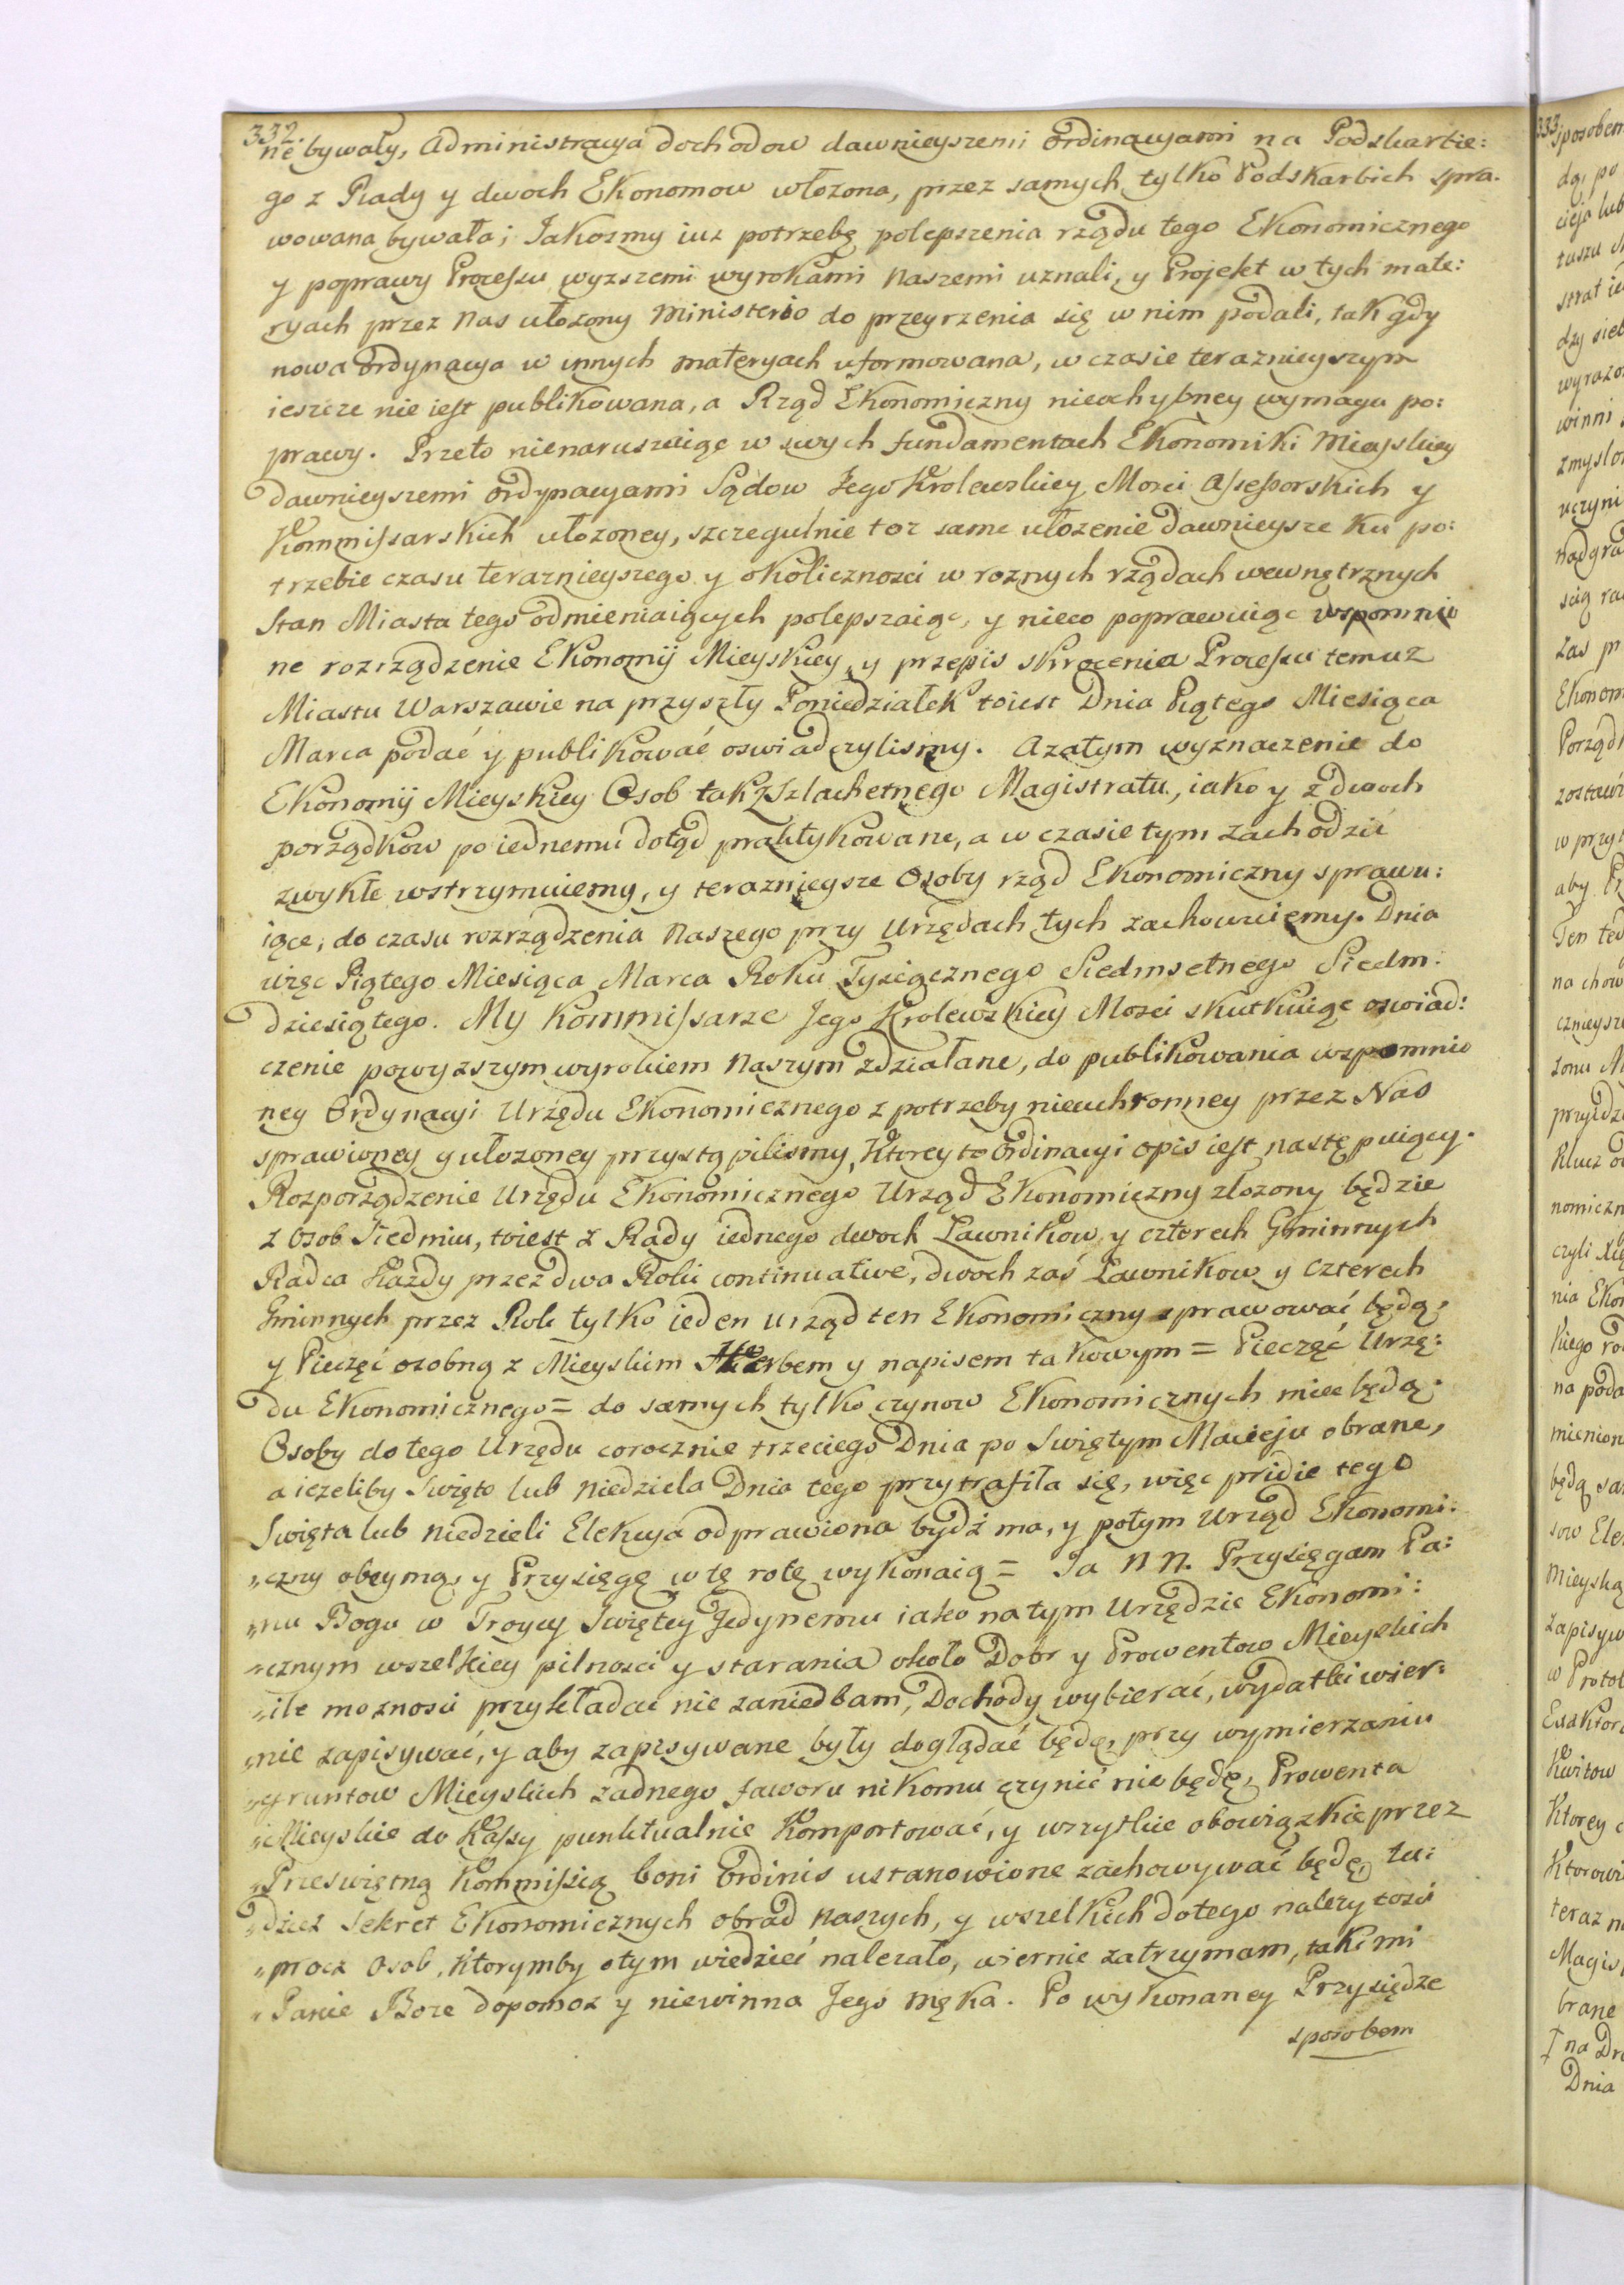 332.
ne bywały, Administracya dochodow dawnieyszemi Ordinacyami na Podskarbie:
go z Rady y dwoch Ekonomow włozona, przez samych tylko Podskarbich spra-
wowana bywała; Jakozmy iuz potrzebę polepszenia rządu tego Ekonomicznego
y poprawy Processu wyzszemi wyrokami Naszemi uznali, y Projekt w tych mate:
ryach przez Nas ułozony Ministerio do przeyrzenia się w nim podali, tak gdy
nowa Ordynacya w innych materyach uformowana, w czasie teraznieyszym
ieszcze nie iest publikowana, a Rząd Ekonomiczny nieochybney wymaga po:
prawy. Przeto nienaruszaiąc w swych fundamentach Ekonomiki Mieyskiey
dawnieyszemi Ordynacyami Sądow Jego Krolewskiey Mosci Assessorskich y
Kommissarskich ułozoney, szczegulnie toz same ułozenie dawnieysze ku po:
trzebie czasu teraznieyszego y okolicznosci w roznych rządach wewnętrznych
Stan Miasta tego odmieniaiących polepszaiąc, y nieco poprawuiąc wspomnio
ne rozrządzenie Ekonomij Mieyskiey, y przepis skrocenia Processu temuz
Miastu Warszawie na przyszły Poniedziałek toiest Dnia Piątego Miesiąca
Marca podać y publikować oswiadczylismy. A zatym wyznaczenie do
Ekonomij Mieyskiey Osob tak z Szlachetnego Magistratu, iako y z dwoch
porządkow po iednemu dotąd praktykowane, a w czasie tym zachodzić
zwykłe wstrzymuiemy, y teraznieysze Osoby rząd Ekonomiczny sprawu:
iące, do czasu rozrządzenia Naszego przy Urzędach tych zachowuiemy. Dnia
więc Piątego Miesiąca Marca Roku Tysiącznego Siedmsetnego Siedm:
dziesiątego. My Kommissarze Jego Krolewskiey Mosci skutkuiąc oswiad:
czenie powyzszym wyrokiem Naszym zdziałane, do publikowania wspomnio
ney Ordynacyi Urzędu Ekonomicznego z potrzeby nieuchronney przez Nas
sprawioney y ułozoney przystąpilismy, Ktorey to Ordinacyi opis iest następuiący.
Rozporządzenie Urzędu Ekonomicznego Urząd Ekonomiczny złozony będzie
z Osob Siedmiu, toiest z Rady iednego dwoch Ławnikow y czterech Gminnych
Radca Kazdy przez dwa Roki continuative, dwoch zaś Ławnikow y czterech
Gminnych przez Rok tylko ieden Urząd ten Ekonomiczny sprawować będą,
y Pieczęć osobną z Mieyskim Herbem y napisem takowym = Pieczęć Urzę:
du Ekonomicznego = do samych tylko czynow Ekonomicznych miec będą.
Osoby do tego Urzędu corocznie trzeciego Dnia po Swiętym Macieju obrane,
a iezeliby Swięto lub Niedziela Dnia tego przytrafiła się, więc pridie tego
Swięta lub Niedzieli Elekcya odprawiona bydź ma, y potym Urząd Ekonomi:
„czny obeymą, y Przysięgę w tę rotę wykonaią = Ja N N. Przysięgam Pa:
„nu Bogu w Troycy Swiętey Jedynemu iako na tym Urzędzie Ekonomi:
„cznym wszelkiey pilnosci y starania około Dobr y Prowentow Mieyskich
„ile moznosci przykładać nie zaniedbam, Dochody wybierać, wydatki wier:
„nie zapisywać, y aby zapisywane były doglądać będę, przy wymierzaniu
„gruntow Mieyskich zadnego faworu nikomu czynić nie będę, Prowenta
„Mieyskie do Kassy punktualnie Komportować, y wszytkie obowiązkie przez
„Przeswiętną Kommissią boni Ordinis ustanowione zachowywać będę, tu:
„dziez Sekret Ekonomicznych obrad Naszych, y wszelkich do tego nalezytosc
„procz Osob, Ktorymby o tym wiedzieć nalezało, wiernie zatrzymam, tak mi
„Panie Boze dopomoz y niewinna Jego Męka. Po wykonaney Przysiędze
sposobem
333.
sposobem